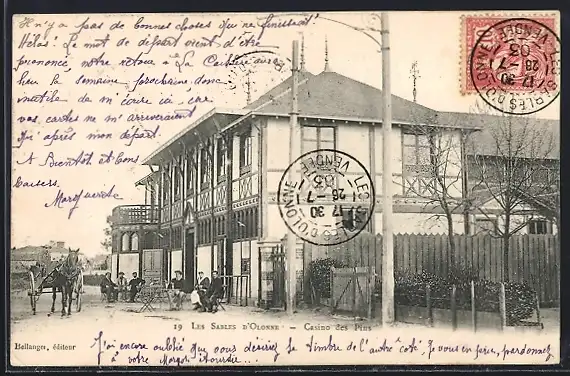 Il n'y a pas de bonnes choses qui ne finissent!
Hélas! Le mot de départ vient d'être
prononcé notre retour à La Caillère au
lieu la semaine prochaine donc
inutile de m'écrire ici, car
vos cartes ne m'arriveraient
qu'après mon départ.
A Bientôt et bons
baisers.
Marguerite
LES SABLES D'OLONNE
VENDÉE
17 30
28 - 7
03
LES SABLES D'OLONNE
VENDÉE
17 30
28 - 7
03
19 LES SABLES D'OLONNE - Casino des Pins
Bellanger, éditeur
J'ai encore oublié que vous désiriez le timbre de l'autre côté, je vous en prie, pardonnez
à votre étourdie...